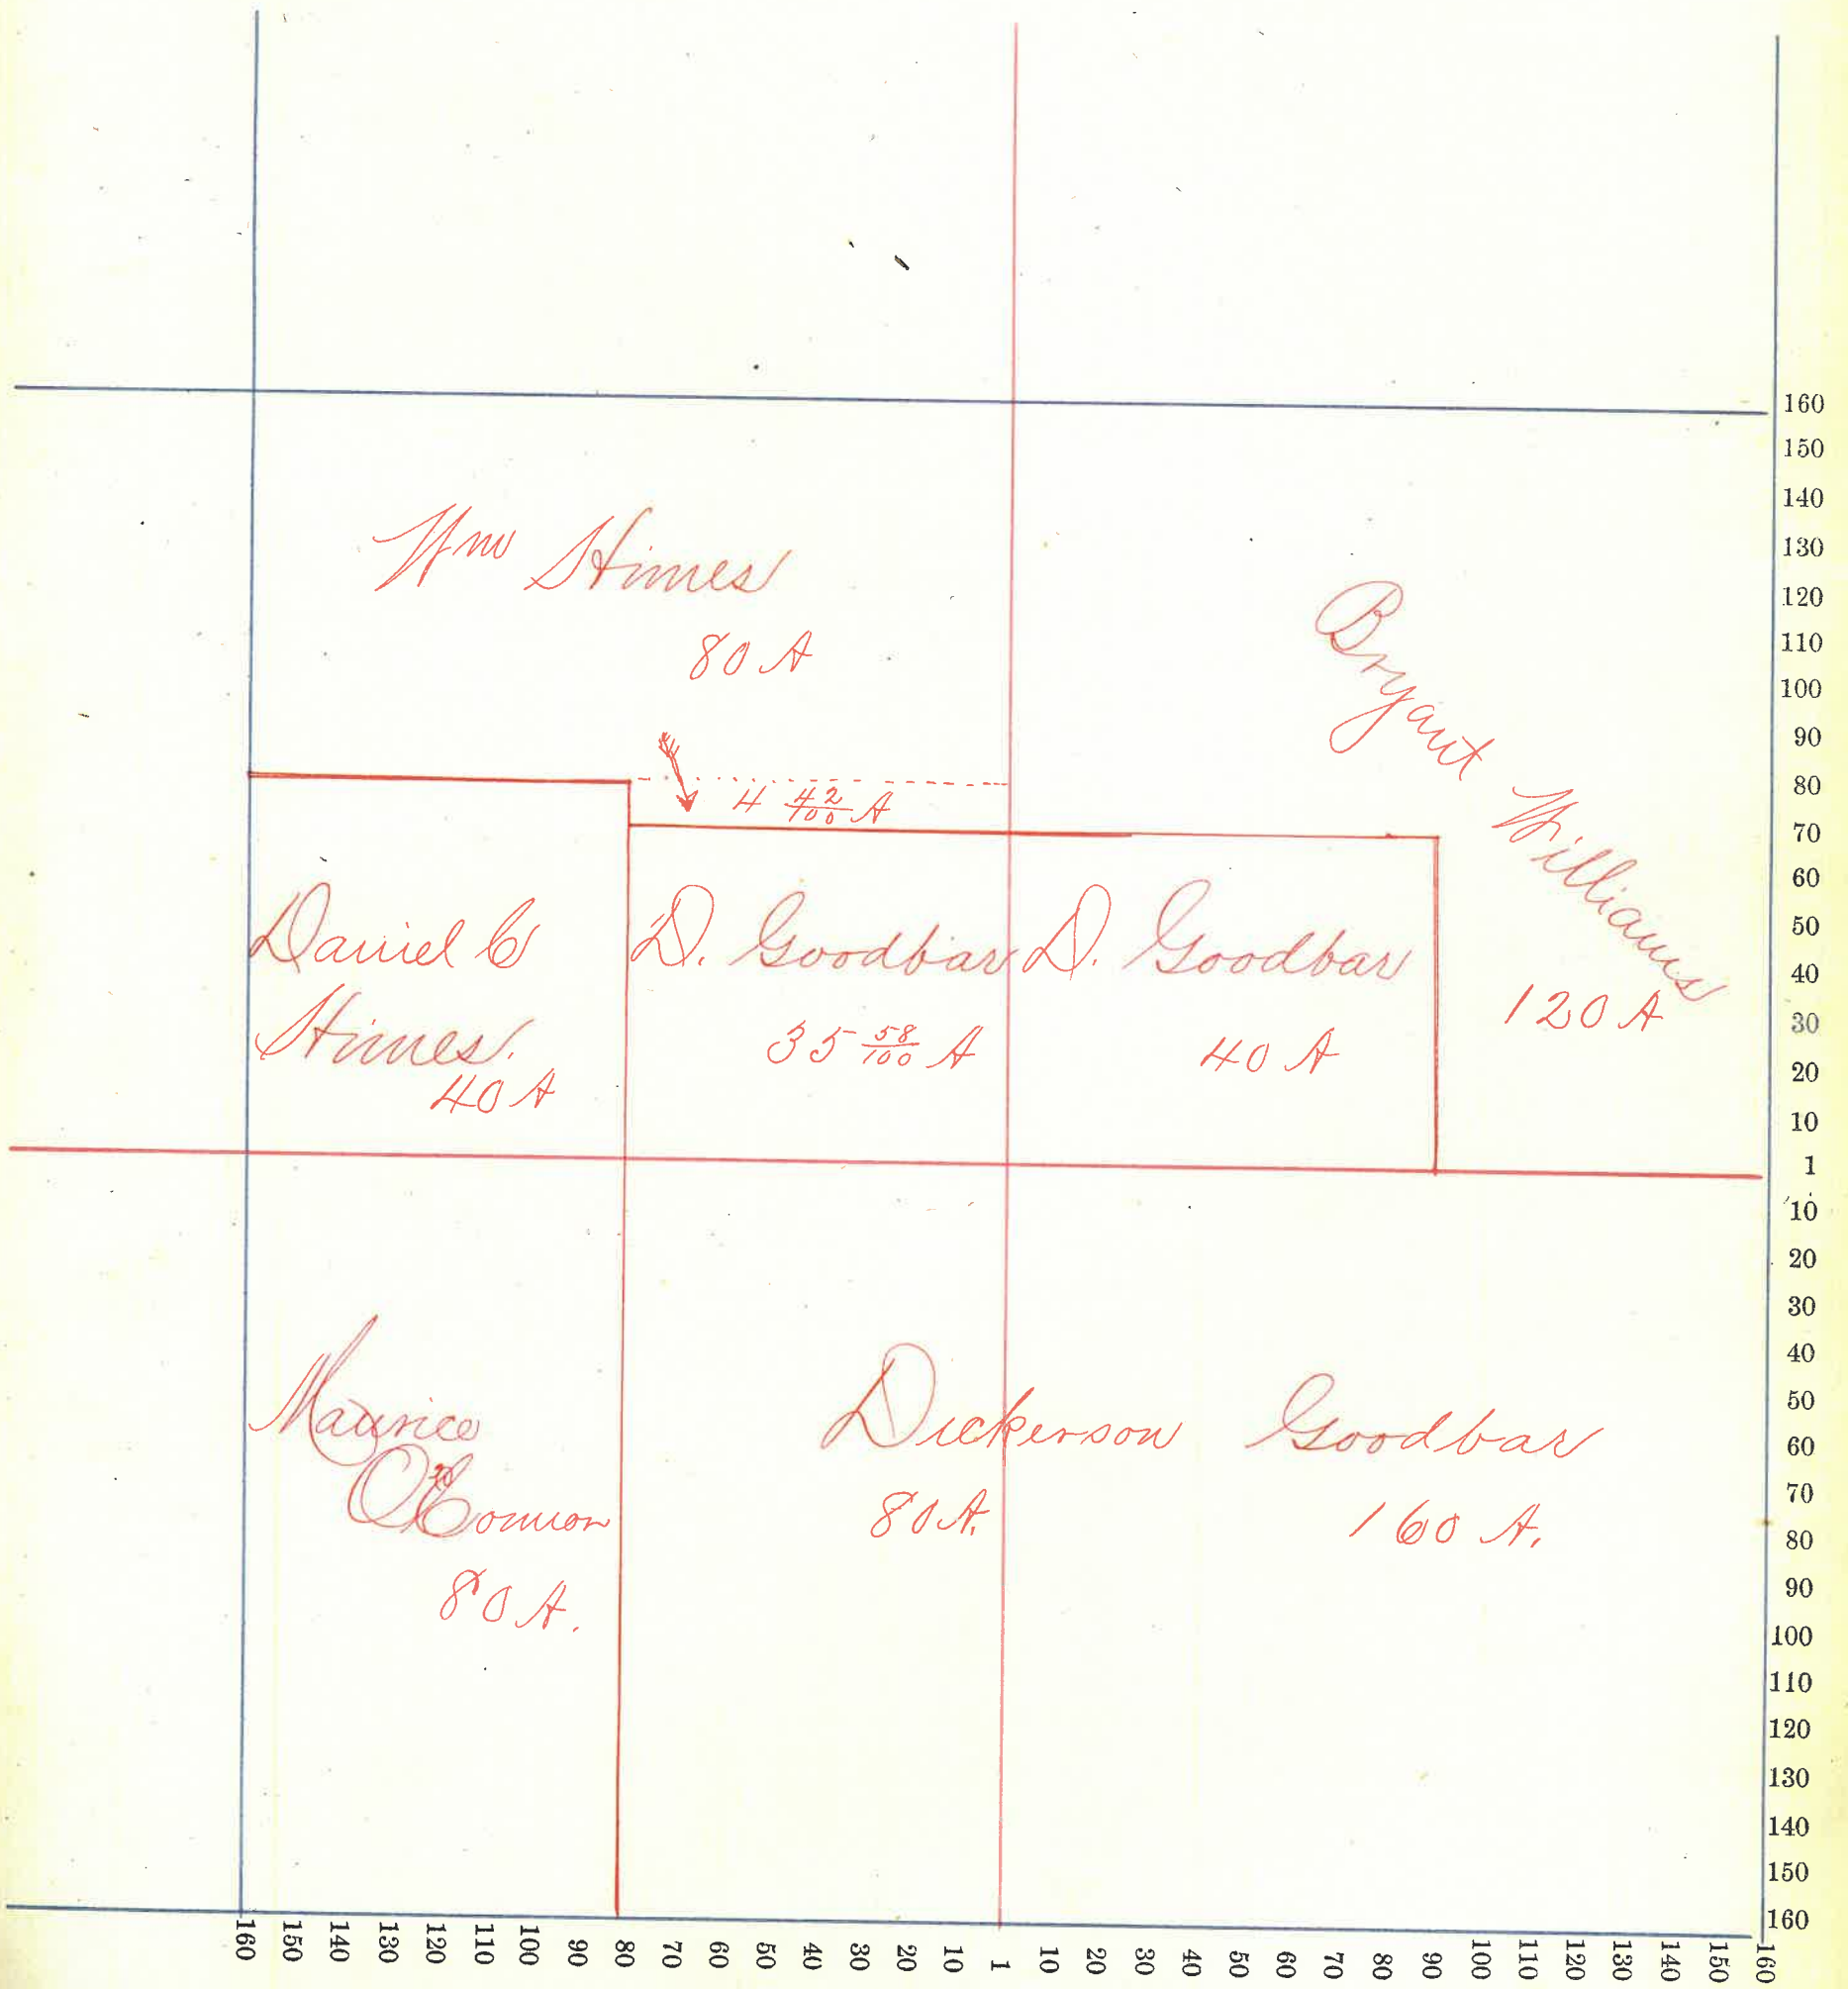 Wm Himes
80 A
Bryant Williams
120 A
4 42/100 A
Daniel C
Himes.
40 A
D. Goodbar
35 58/100 A
D. Goodbar
40 A
Maurice
O'Connor
80 A.
Dickerson Goodbar
80 A.
160 A.
160
150
140
130
120
110
100
90
80
70
60
50
40
30
20
10
1
10
20
30
40
50
60
70
80
90
100
110
120
130
140
150
160
160 150 140 130 120 110 100 90 80 70 60 50 40 30 20 10 1 10 20 30 40 50 60 70 80 90 100 110 120 130 140 150 160